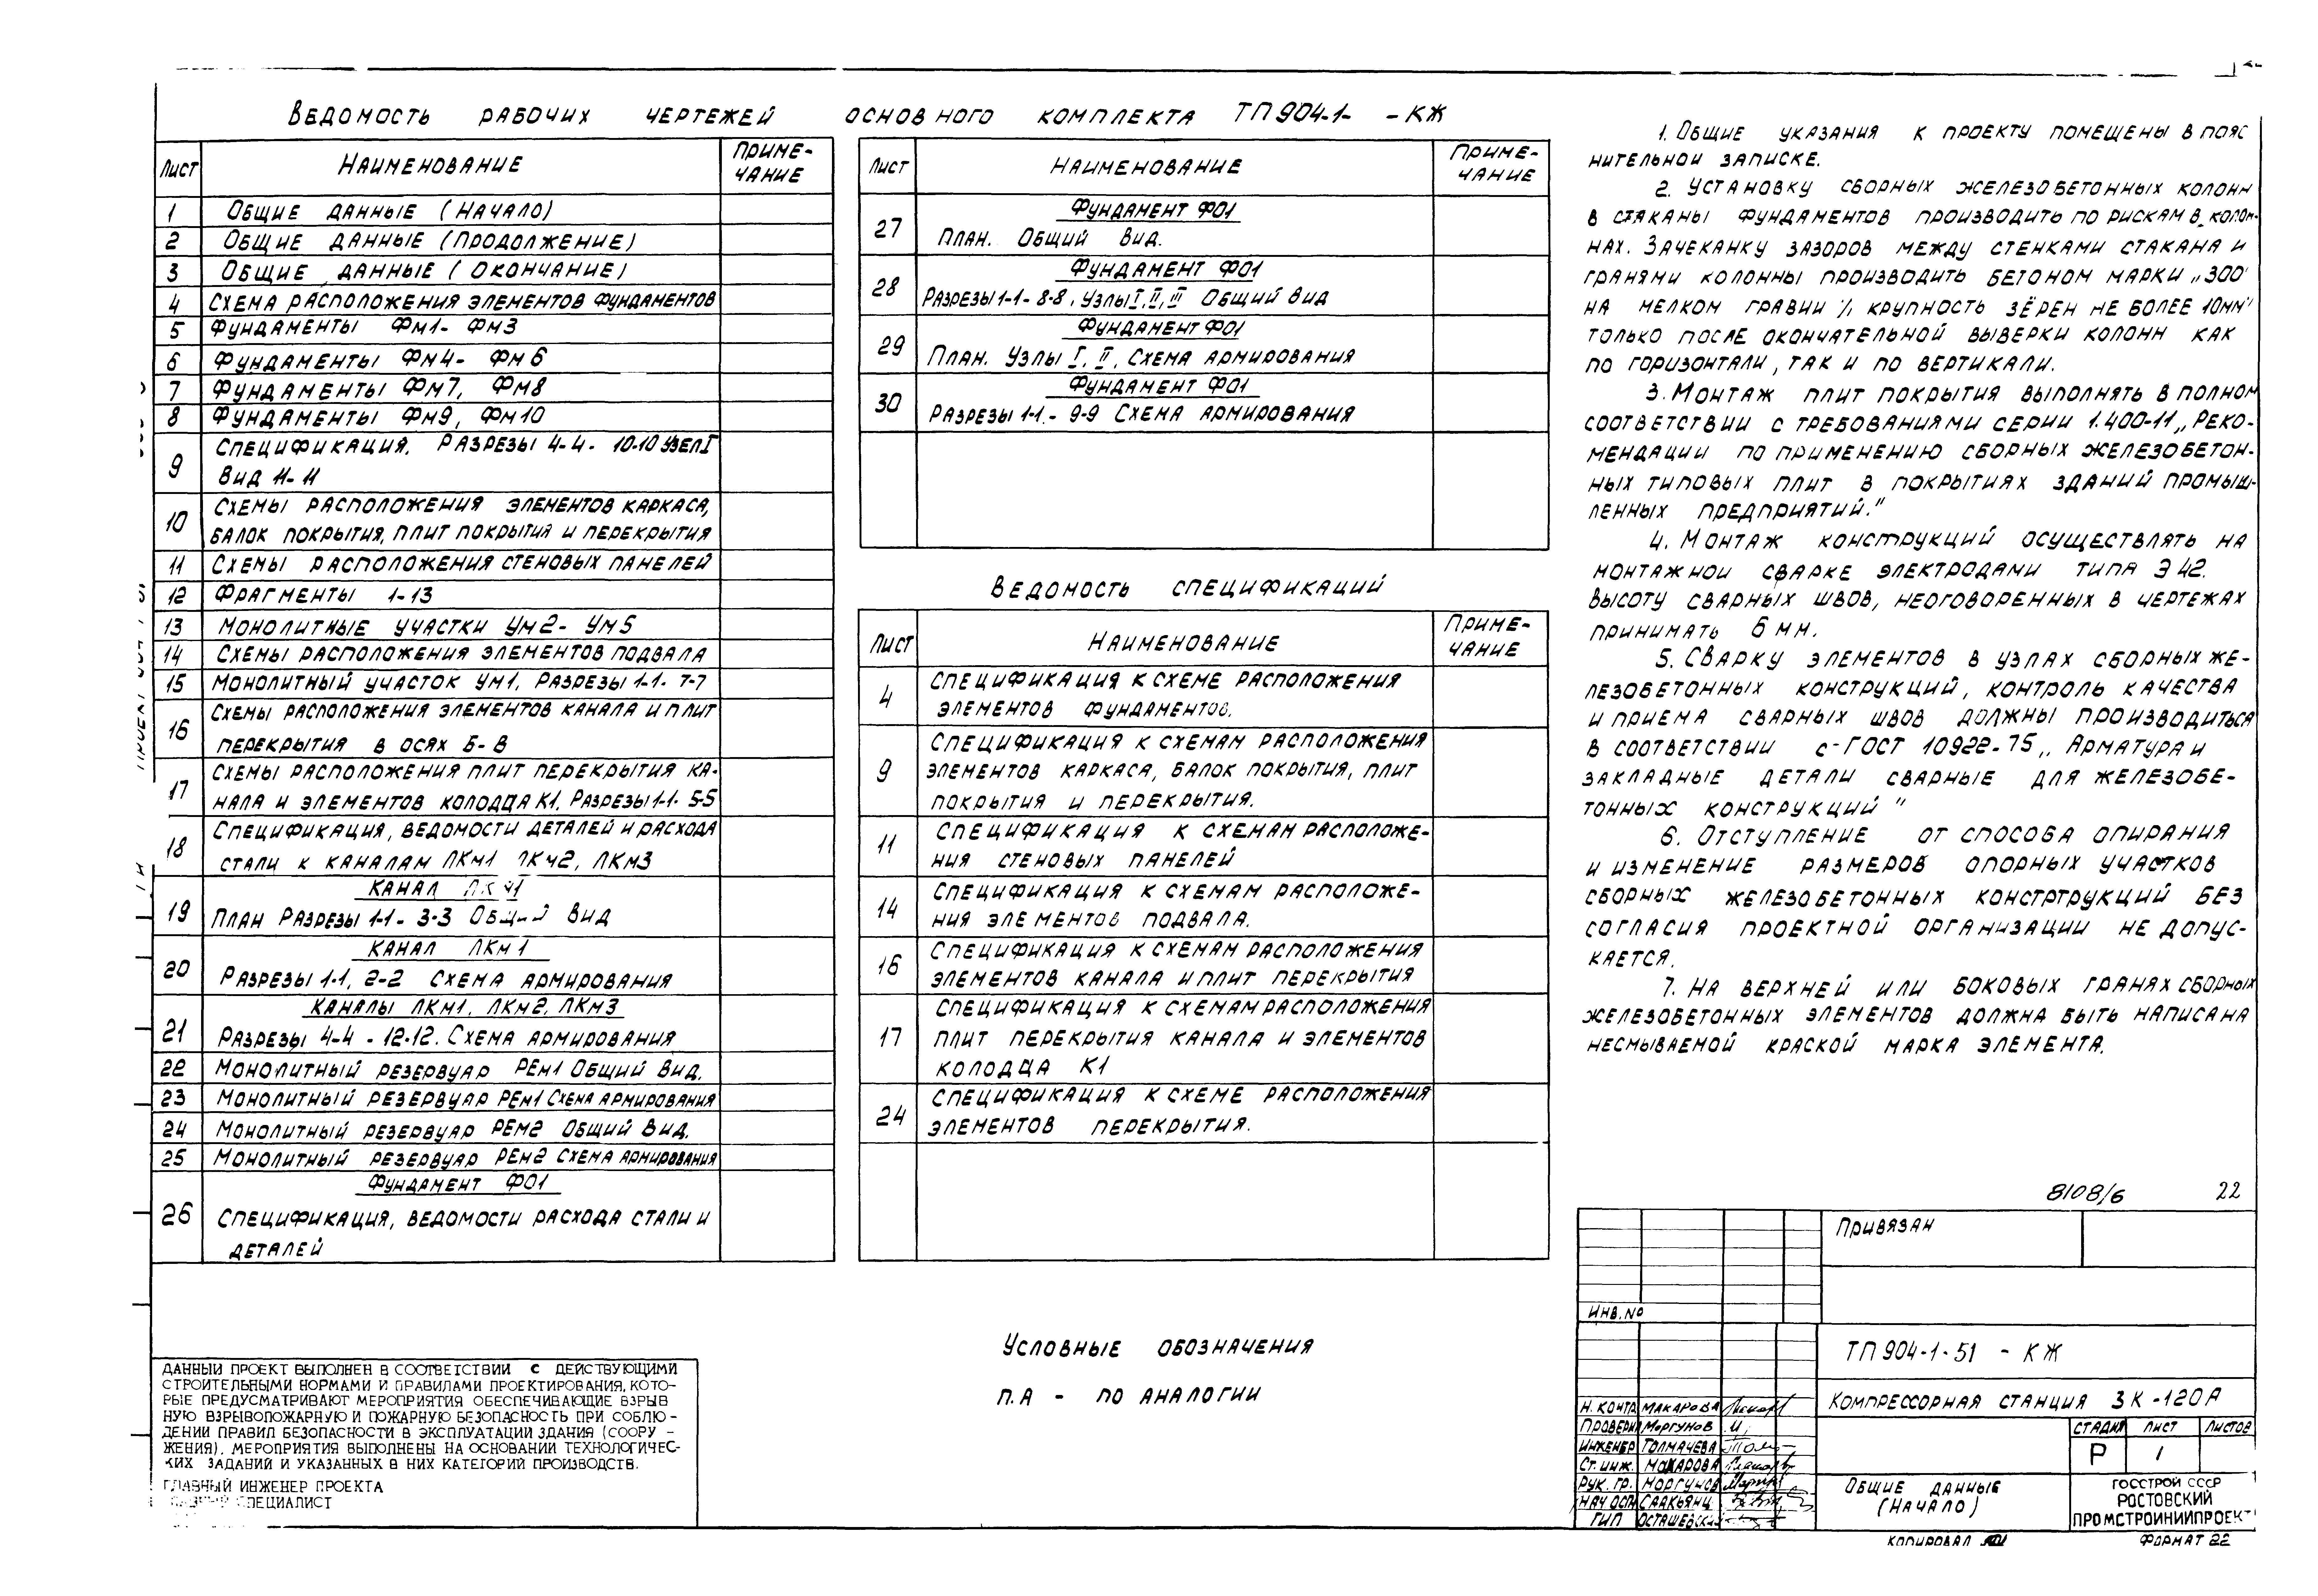 Ведомость рабочих чертежей основного комплекта ТП904-1- -КЖ
Лист Наименование Приме-
чание
1 Общие данные (Начало)
2 Общие данные (Продолжение)
3 Общие данные (Окончание)
4 Схема расположения элементов фундаментов
5 Фундаменты Фм1- Фм3
6 Фундаменты Фм4- Фм6
7 Фундаменты Фм7, Фм8
8 Фундаменты Фм9, Фм10
9 Спецификация. Разрезы 4-4- 10-10 Узел I
Вид 11-11
10 Схемы расположения элементов каркаса,
балок покрытия, плит покрытия и перекрытия
11 Схемы расположения стеновых панелей
12 Фрагменты 1-13
13 Монолитные участки Ум2- Ум5
14 Схемы расположения элементов подвала
15 Монолитный участок Ум1, Разрезы 1-1- 7-7
16 Схемы расположения элементов канала и плит
перекрытия в осях Б- В
17 Схемы расположения плит перекрытия ка-
нала и элементов колодца К1, Разрезы 1-1- 5-5
18 Спецификация, ведомости деталей и расхода
стали к каналам ЛКм1 ЛКм2, ЛКм3
19 Канал ЛКм1
План Разрезы 1-1- 3-3 Общий вид
20 Канал ЛКм1
Разрезы 1-1, 2-2 Схема армирования
21 Каналы ЛКм1, ЛКм2, ЛКм3
Разрезы 4-4 - 12-12. Схема армирования
22 Монолитный резервуар РЕм1 Общий вид.
23 Монолитный резервуар РЕм1 Схема армирования
24 Монолитный резервуар РЕм2 Общий вид.
25 Монолитный резервуар РЕм2 Схема армирования
26 Фундамент Ф01
Спецификация, ведомости расхода стали и
деталей
Лист Наименование Приме-
чание
27 Фундамент Ф01
План. Общий вид.
28 Фундамент Ф01
Разрезы 1-1- 8-8, Узлы I, II, III Общий вид
29 Фундамент Ф01
План. Узлы I, II, Схема армирования
30 Фундамент Ф01
Разрезы 1-1- 9-9 Схема армирования
Ведомость спецификаций
Лист Наименование Приме-
чание
4 Спецификация к схеме расположения
элементов фундаментов.
9 Спецификация к схемам расположения
элементов каркаса, балок покрытия, плит
покрытия и перекрытия.
11 Спецификация к схемам расположе-
ния стеновых панелей
14 Спецификация к схемам расположе-
ния элементов подвала.
16 Спецификация к схемам расположения
элементов канала и плит перекрытия
17 Спецификация к схемам расположения
плит перекрытия канала и элементов
колодца К1
24 Спецификация к схеме расположения
элементов перекрытия.
Условные обозначения
п.а - по аналогии
1. Общие указания к проекту помещены в пояс
нительной записке.
2. Установку сборных железобетонных колонн
в стаканы фундаментов производить по рискам в колон-
нах. Зачеканку зазоров между стенками стакана и
гранями колонны производить бетоном марки „300"
на мелком гравии /крупность зёрен не более 10мм/
только после окончательной выверки колонн как
по горизонтали, так и по вертикали.
3. Монтаж плит покрытия выполнять в полном
соответствии с требованиями серии 1.400-11 „Реко-
мендации по применению сборных железобетон-
ных типовых плит в покрытиях зданий промыш-
ленных предприятий."
4. Монтаж конструкций осуществлять на
монтажной сварке электродами типа Э42.
Высоту сварных швов, неоговоренных в чертежах
принимать 6 мм.
5. Сварку элементов в узлах сборных же-
лезобетонных конструкций, контроль качества
и приема сварных швов должны производиться
в соответствии с ГОСТ 10922-75 „Арматура и
закладные детали сварные для железобе-
тонных конструкций"
6. Отступление от способа опирания
и изменение размеров опорных участков
сборных железобетонных констртрукций без
согласия проектной организации не допус-
кается.
7. На верхней или боковых гранях сборных
железобетонных элементов должна быть написана
несмываемой краской марка элемента.
8108/6 22
Привязан
Инв.№
ТП 904-1-51 - КЖ
Компрессорная станция 3К-120А
Н. контр Макарова
Проверил Моргунов
Инженер Толмачева
Ст. инж. Макарова
Рук. гр. Моргунов
Нач ОСП Саакьянц
ГИП Осташевский
Стадия Лист Листов
Р 1
Общие данные
(Начало)
ГОССТРОЙ СССР
РОСТОВСКИЙ
ПРОМСТРОЙНИИПРОЕКТ
Копировал
Формат 22
ДАННЫЙ ПРОЕКТ ВЫПОЛНЕН В СООТВЕТСТВИИ С ДЕЙСТВУЮЩИМИ
СТРОИТЕЛЬНЫМИ НОРМАМИ И ПРАВИЛАМИ ПРОЕКТИРОВАНИЯ, КОТО-
РЫЕ ПРЕДУСМАТРИВАЮТ МЕРОПРИЯТИЯ ОБЕСПЕЧИВАЮЩИЕ ВЗРЫВ
НУЮ ВЗРЫВОПОЖАРНУЮ И ПОЖАРНУЮ БЕЗОПАСНОСТЬ ПРИ СОБЛЮ-
ДЕНИИ ПРАВИЛ БЕЗОПАСНОСТИ В ЭКСПЛУАТАЦИИ ЗДАНИЯ (СООРУ-
ЖЕНИЯ). МЕРОПРИЯТИЯ ВЫПОЛНЕНЫ НА ОСНОВАНИИ ТЕХНОЛОГИЧЕС-
КИХ ЗАДАНИЙ И УКАЗАННЫХ В НИХ КАТЕГОРИЙ ПРОИЗВОДСТВ.
ГЛАВНЫЙ ИНЖЕНЕР ПРОЕКТА
ГЛАВНЫЙ СПЕЦИАЛИСТ